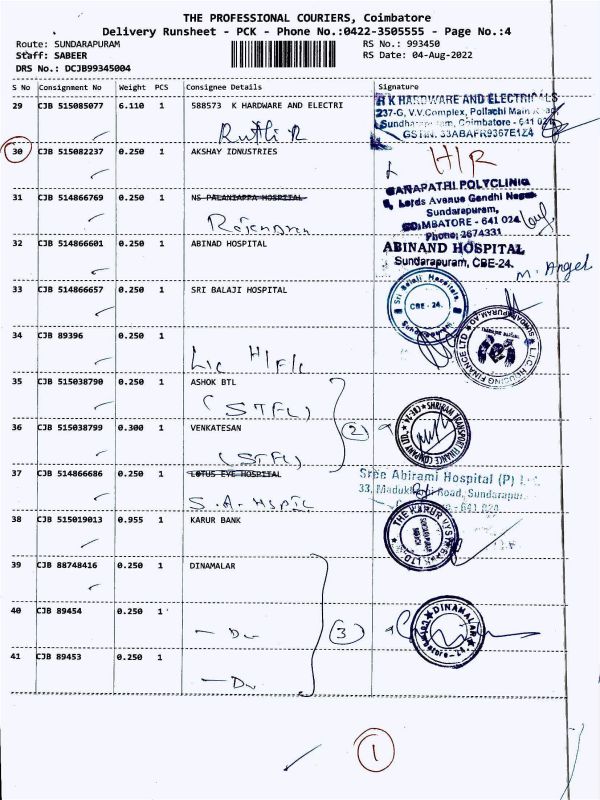 THE PROFESSIONAL COURIERS, Coimbatore
Delivery Runsheet - PCK - Phone No.:0422-3505555 - Page No.:4
Route: SUNDARAPURAM RS No.: 993450
Staff: SABEER RS Date: 04-Aug-2022
DRS No.: DCJB99345004
S No Consignment No Weight PCS Consignee Details Signature
29 CJB 515085077 6.110 1 588573 K HARDWARE AND ELECTRI
R K HARDWARE AND ELECTRICALS
237-G, V.V.Complex, Pollachi Main
Coimbatore - 641 024
GSTIN. 33ABAFR9367E1Z4
30 CJB 515082237 0.250 1 AKSHAY IDNUSTRIES
31 CJB 514866769 0.250 1 NS PALANIAPPA HOSPITAL
Rajendran
GANAPATHI POLYCLINIC
Lords Avenue Gandhi Nagar
Sundarapuram,
COIMBATORE - 641 024
Phone: 2674331
32 CJB 514866601 0.250 1 ABINAD HOSPITAL
ABINAND HOSPITAL
Sundarapuram, CBE-24.
M. Angel
33 CJB 514866657 0.250 1 SRI BALAJI HOSPITAL
Sri Balaji Hospitals,
CBE - 24.
Sundarapuram.
34 CJB 89396 0.250 1
Lic H/F/c
L.I.C. HOUSING FINANCE LTD
35 CJB 515038790 0.250 1 ASHOK BTL
(STFL)
36 CJB 515038799 0.300 1 VENKATESAN
(STFL)
2
SHRIRAM TRANSPORT FINANCE COMPANY LTD.
37 CJB 514866686 0.250 1 LOTUS EYE HOSPITAL
S.A-HSPTL
Sree Abirami Hospital (P)
33, Road, Sundarapur
641 024
38 CJB 515019013 0.955 1 KARUR BANK
THE KARUR VYSYA BANK LTD
39 CJB 88748416 0.250 1 DINAMALAR
40 CJB 89454 0.250 1
3
DINAMALAR
41 CJB 89453 0.250 1
1